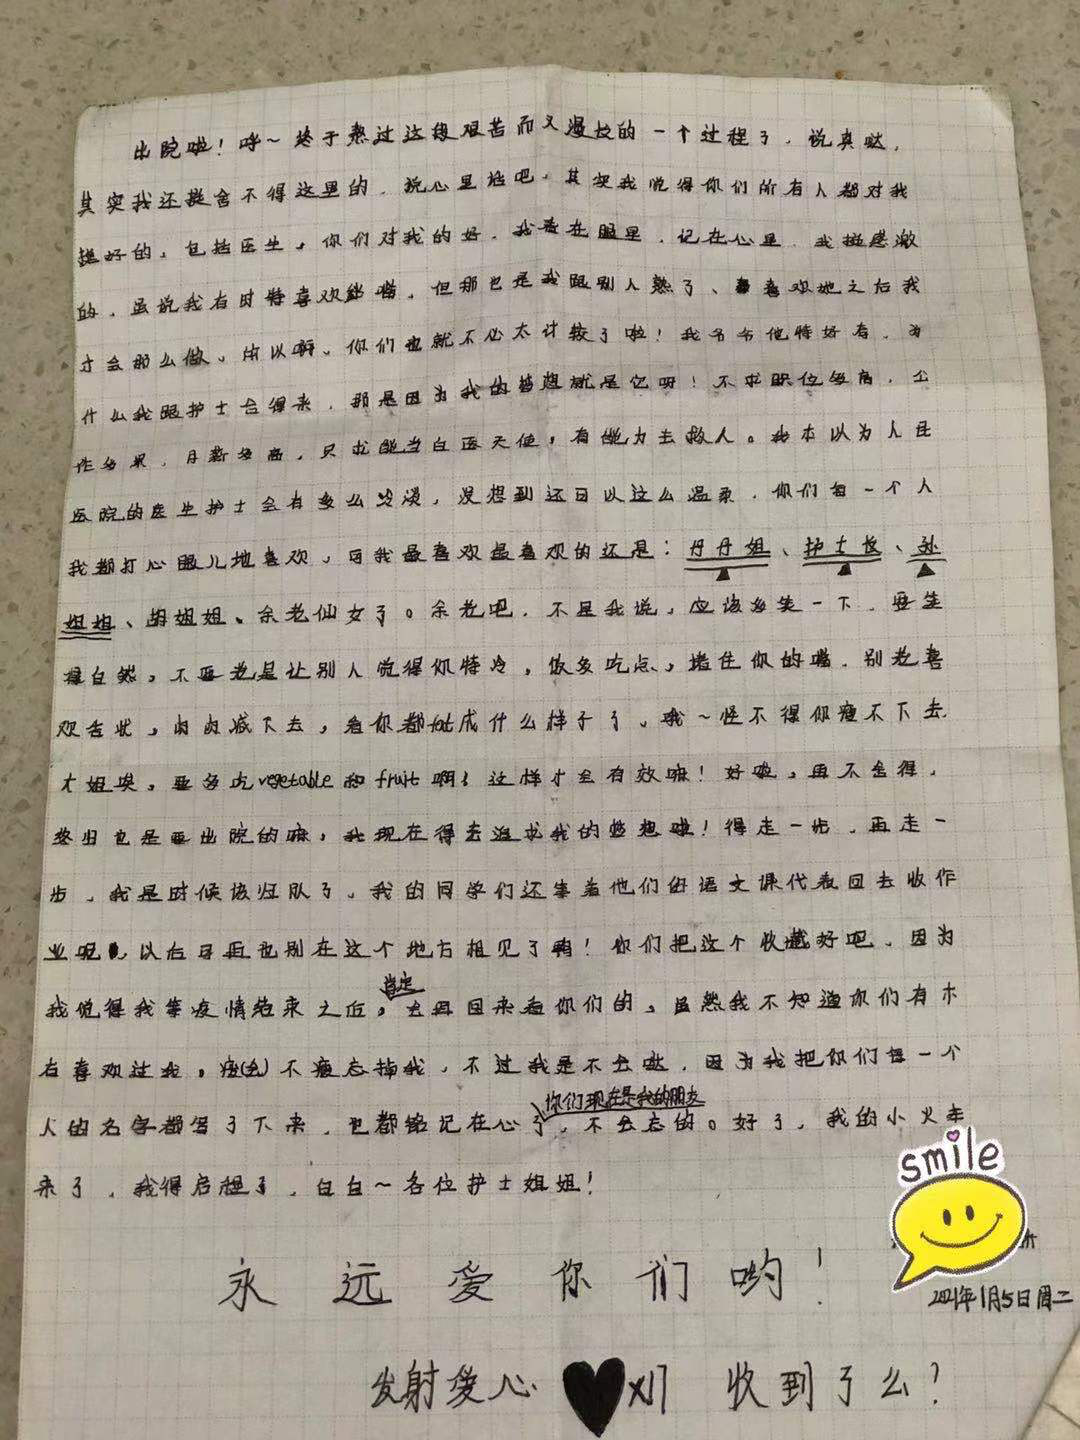 出院啦！呼～终于熬过这段艰苦而又漫长的一个过程了，说真哒，
其实我还挺舍不得这里的，说心里话吧，其实我觉得你们所有人都对我
挺好的，包括医生，你们对我的好，我看在眼里，记在心里，我挺感激
的，虽说我有时特喜欢，但那也是我跟别人熟了、喜欢她之后我
才会那么做，所以啊，你们也就不必太计较了啦！我爷爷他特好奇，为
什么我跟护士合得来，那是因为我的梦想就是它呀！不求职位多高，工
作多累，月薪多高，只求能当白医天使，有能力去救人。我本以为人民
医院的医生护士会有多么冷漠，没想到还可以这么温柔，你们每一个人
我都打心眼儿地喜欢，可我最喜欢最喜欢的还是：丹丹姐、护士长、孙
姐姐、胡姐姐、余老仙女了。余老吧，不是我说，应该多笑一下，要笑
得自然，不要老是让别人觉得你特冷，饭多吃点，堵住你的嘴，别老喜
欢告状，肉肉减下去，看你都成什么样子了，哦～怪不得你瘦不下去，
大姐唉，要多吃vegetable和fruit啊！这样才会有效嘛！好啦，再不舍得，
终归也是要出院的嘛，我现在得去追求我的梦想啦！得走一步，再走一
步，我是时候该归队了，我的同学们还等着他们的语文课代表回去收作
业呢，以后可再也别在这个地方相见了啊！你们把这个收藏好吧，因为
我觉得我等疫情结束之后，肯定会再回来看你们的，虽然我不知道你们有木
有喜欢过我，(会)不会忘掉我，不过我是不会哒，因为我把你们每一个
人的名字都写了下来，也都铭记在心了，你们现在是我的朋友，不会忘的。好了，我的小火车
来了，我得启程了，白白～各位护士姐姐！
smile
永远爱你们哟！
2021年1月5日周二
发射爱心 刈 收到了么？